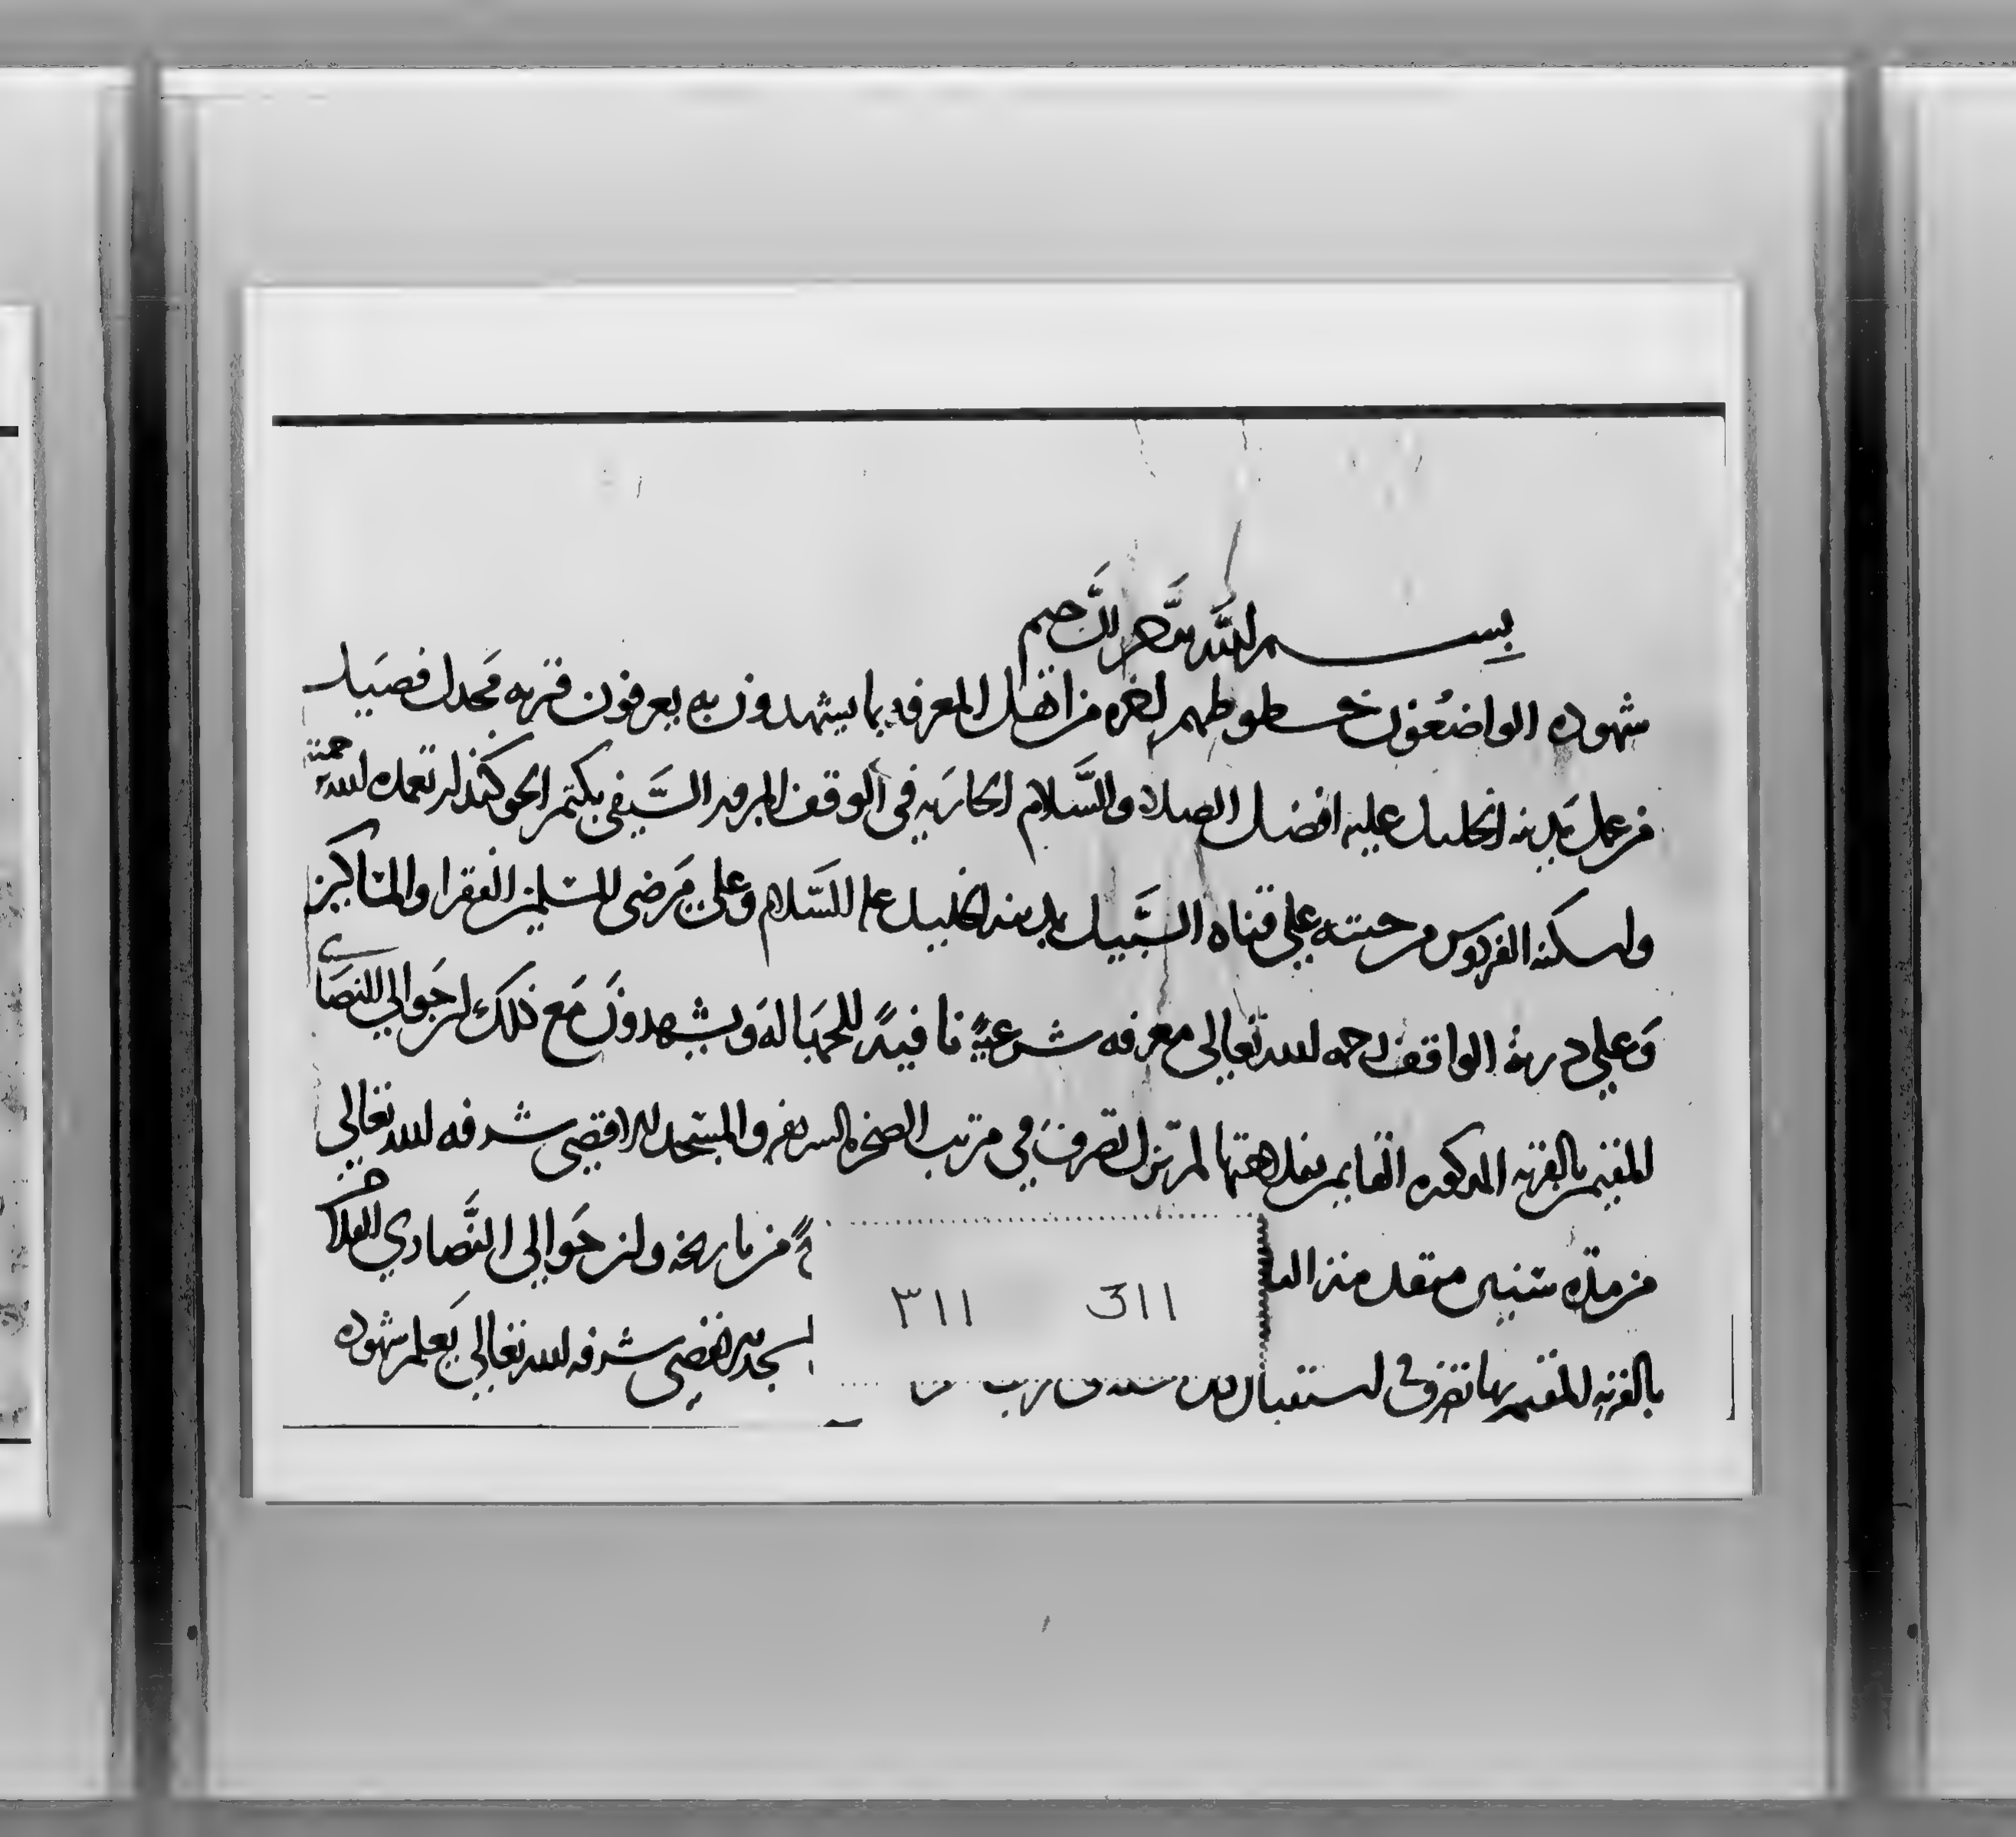 بسم الله الرحمن الرحيم
شهوده الواضعون خطوطهم اخره من اهل المعرفه بما يشهدون به يعرفون قريه مجدل فصيل
من عمل مدينه الخليل عليه افضل الصلاه والسلام الجاريه في الوقف المرحوم السيفي بكتمر الجوكندار تغمده الله برحمته
واسكنه الفردوس من جنته علي قناه السبيل بمدينه الخليل عليه السلام وعلي مرضي المسلمين الفقرا والمساكين
وعلي ذريه الواقف رحمه الله تعالى معرفه شرعيه نافيةً للجهاله ويشهدون مع ذلك ان جوالي النصاري
المقيمين بالقريه المدكوره القايمين بفلاحتها لم تزل تصرف في مرتب الصخره الشريفه والمسجد الاقصى شرفه الله تعالى
من مده سنين متقدمه من تاريخه وان جوالي النصاري الفلاحين
بالقريه المقيمين بها تصرف في استقبال المسجد الاقصى شرفه الله تعالى يعلم شهوده
٣١١ 311